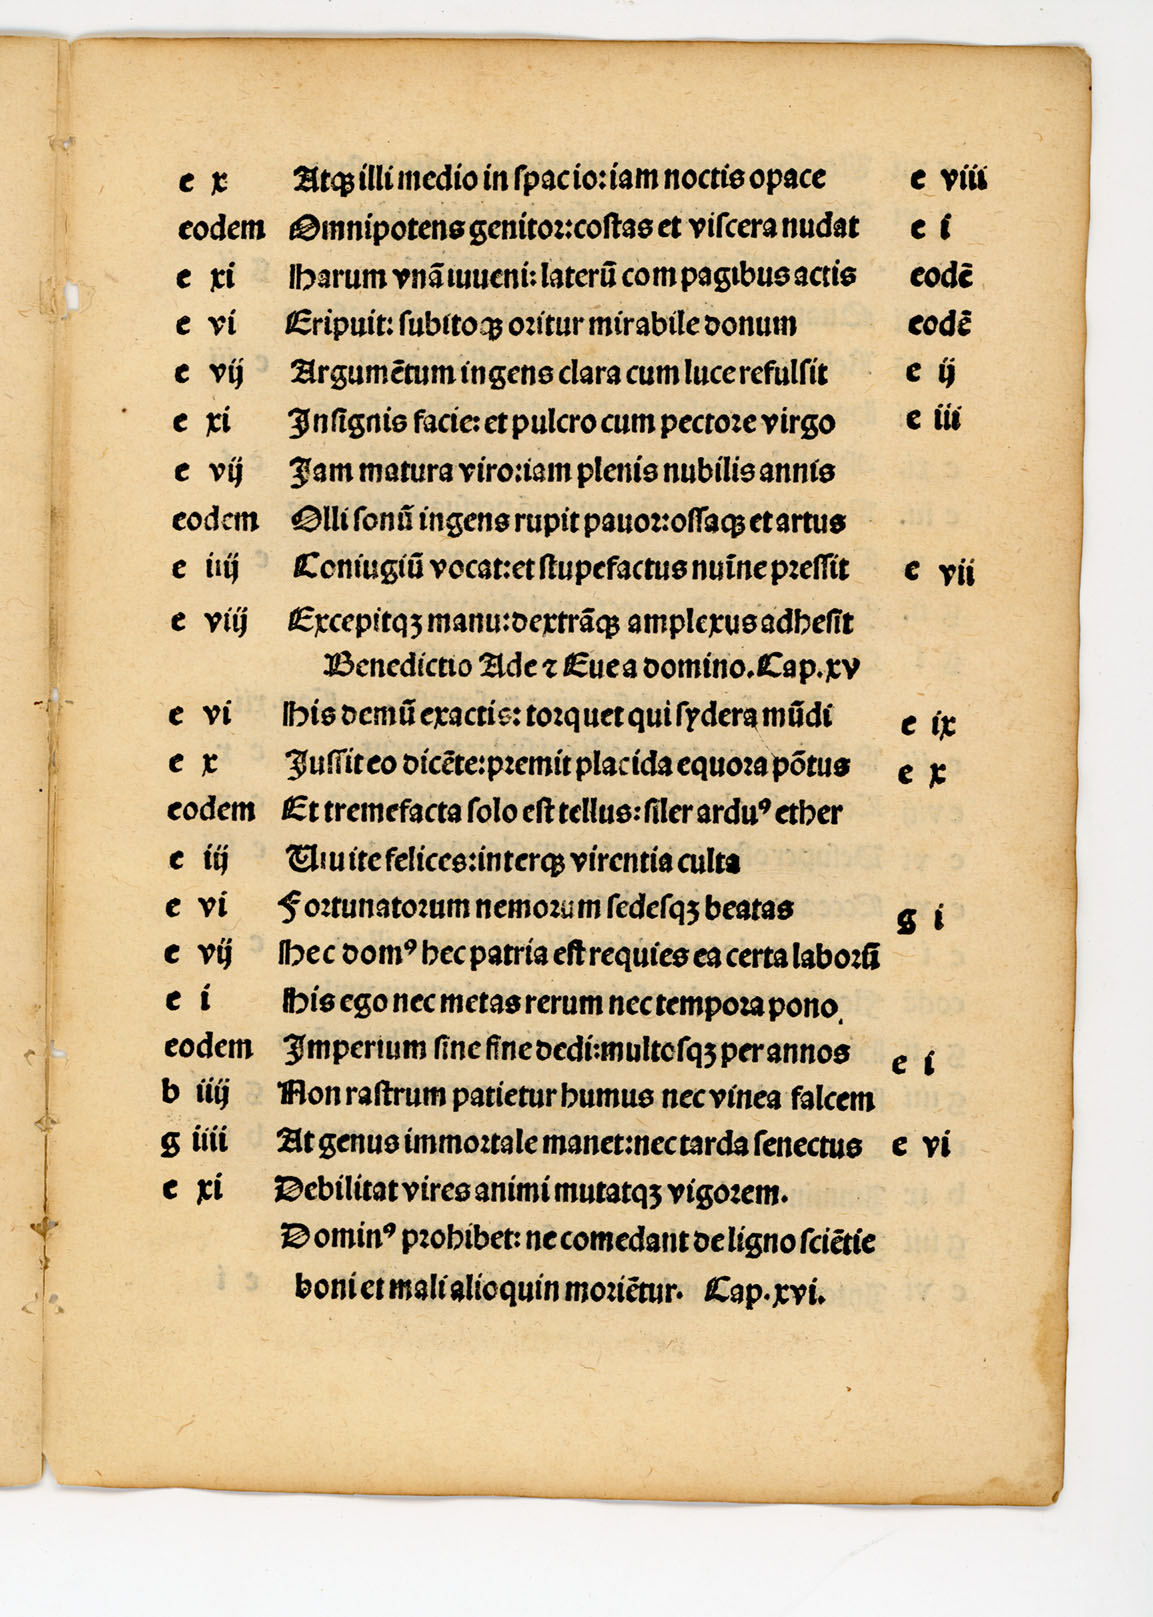 e x Atqꝫ illi medio in spacio: iam noctis opace e viii
eodem Omnipotens genitor: costas et viscera nudat e i
e xi Harum vnā iuueni: laterū compagibus actis eodē
e vi Eripuit: subitoqꝫ oritur mirabile donum eodē
e vij Argumētum ingens clara cum luce refulsit e ij
e xi Insignis facie: et pulcro cum pectore virgo e iii
e vij Jam matura viro: iam plenis nubilis annis
eodem Olli sonū ingens rupit pauor: ossaqꝫ et artus
e iiij Coniugiū vocat: et stupefactus nuīne pressit e vii
e viij Excepitqꝫ manu: dextrāqꝫ amplexus adhesit
Benedictio Ade ⁊ Eue a domino. Cap. xv
e vi His demū exactis: torquet qui sydera mūdi e ix
e x Jussit eo dicēte: premit placida equora pōtus e x
eodem Et tremefacta solo est tellus: siler arduꝰ ether
e iij Viuite felices: interqꝫ virentia culta
e vi Fortunatorum nemorum sedesqꝫ beatas g i
e vij Hec domꝰ hec patria est requies ea certa laborū
e i His ego nec metas rerum nec tempora pono
eodem Imperium sine fine dedi: multosqꝫ per annos e i
b iiij Non rastrum patietur humus nec vinea falcem
g iiii At genus immortale manet: nec tarda senectus e vi
e xi Debilitat vires animi mutatqꝫ vigorem.
Dominꝰ prohibet: ne comedant de ligno sciētie
boni et mali alioquin moriētur. Cap. xvi.